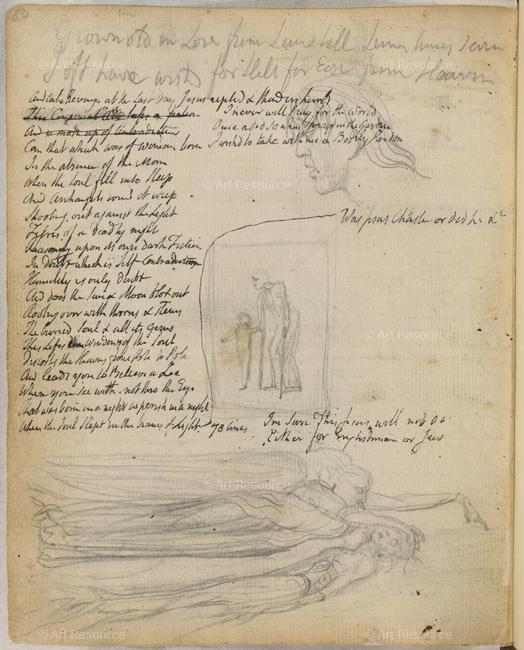 54
Grown old in Love from Seven till Seven times Seven
I oft have wishd for Hell for Ease from Heaven
Revenge at the Last Day Jesus replied & thunders hurld
I never will Pray for the World
Once I did so when I prayd in the Garden
I wishd to take with me a Bodily Pardon
Can that which was of woman born
In the absence of the Morn
When the Soul fell into Sleep
And Archangels round it weep
Shooting out against the Light
Fibres of a deadly night
Reasoning upon its own Dark Fiction
In Doubt which is Self Contradiction
Humility is only Doubt
And does the Sun & Moon blot out
Rooting over with thorns & Stems
The buried Soul & all its Gems
This Lifes dim Windows of the Soul
Distorts the Heavens from Pole to Pole
And leads you to Believe a Lie
When you see with not thro the Eye
That was born in a night to perish in a night
When the Soul slept in the beams of Light
78 lines
Was Jesus Chaste or did he &c
Im sure This Jesus will not do
Either for Englishman or Jew
© Art Resource
© Art Resource
© Art Resource